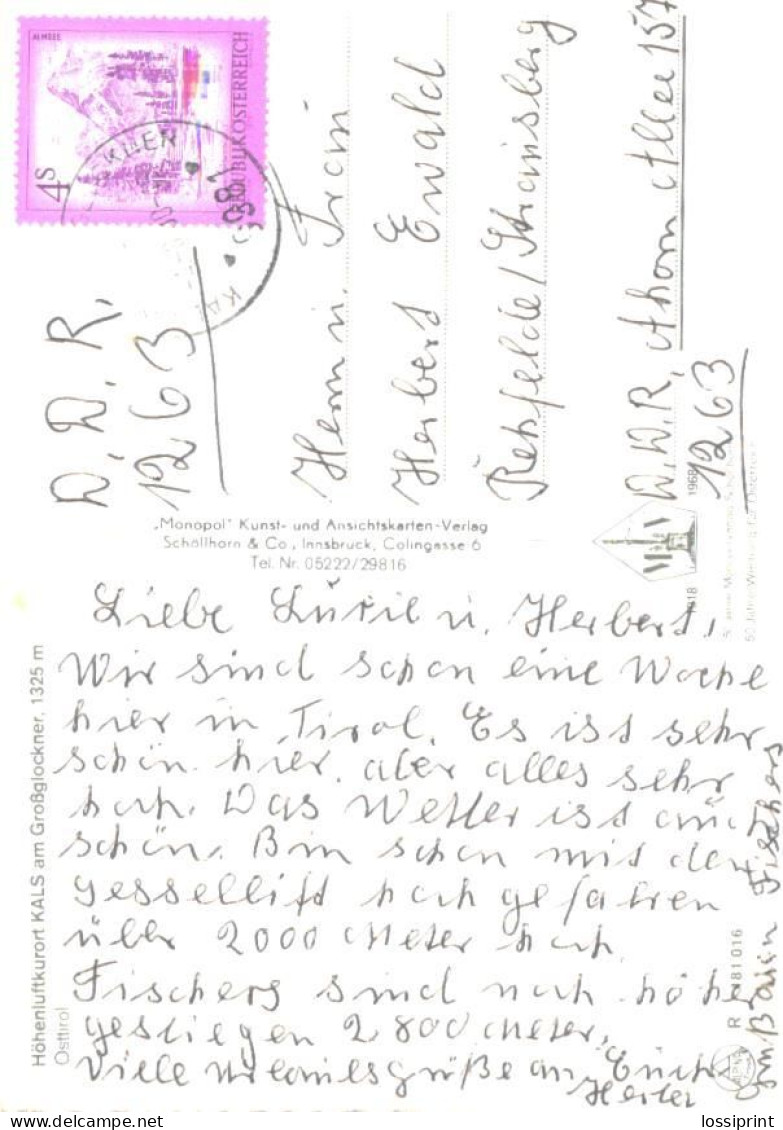 ALMSEE
4 S
REPUBLIK ÖSTERREICH
1981
D. D. R.
1263
Herrn u. Frau
Herbert Ewald
Petzfelde/Strausberg
Ahorn Allee 157
D.D.R.
1263
„Monopol" Kunst- und Ansichtskarten-Verlag
Schöllhorn & Co., Innsbruck, Colingasse 6
Tel. Nr. 05222/29816
1918 1968
Höhenluftkurort KALS am Großglockner, 1325 m
Osttirol
Liebe u. Herbert,
Wir sind schon eine Woche
hier in Tirol. Es ist sehr
schön hier, aber alles sehr
hoch. Das Wetter ist auch
schön. Bin schon mit den
Gessellift hoch gefahren
über 2000 Meter hoch
Fischers sind noch höher
gestiegen 2800 Meter.
Viele Urlaubsgrüße an Euch
Herta
Fischers
R 81 016
lossiprint